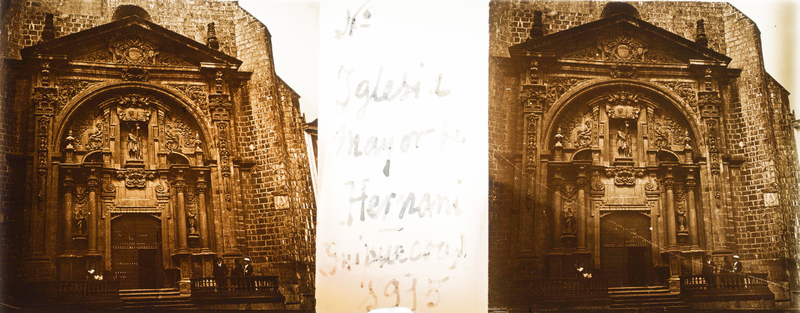 Nº
Iglesia
Mayor de
Hernani
Guipuecoa
1915